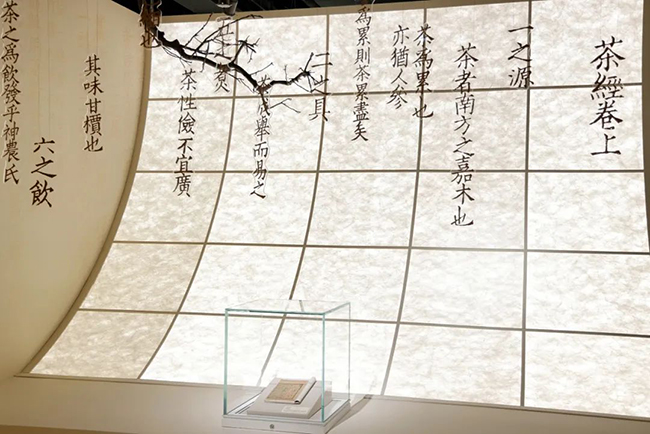 茶經卷上
一之源
茶者南方之嘉木也
茶為累也
亦猶人參
為累則茶累盡矣
二之具
茶成舉而易之
五之煮
茶性儉不宜廣
其味甘檟也
六之飲
茶之為飲發乎神農氏